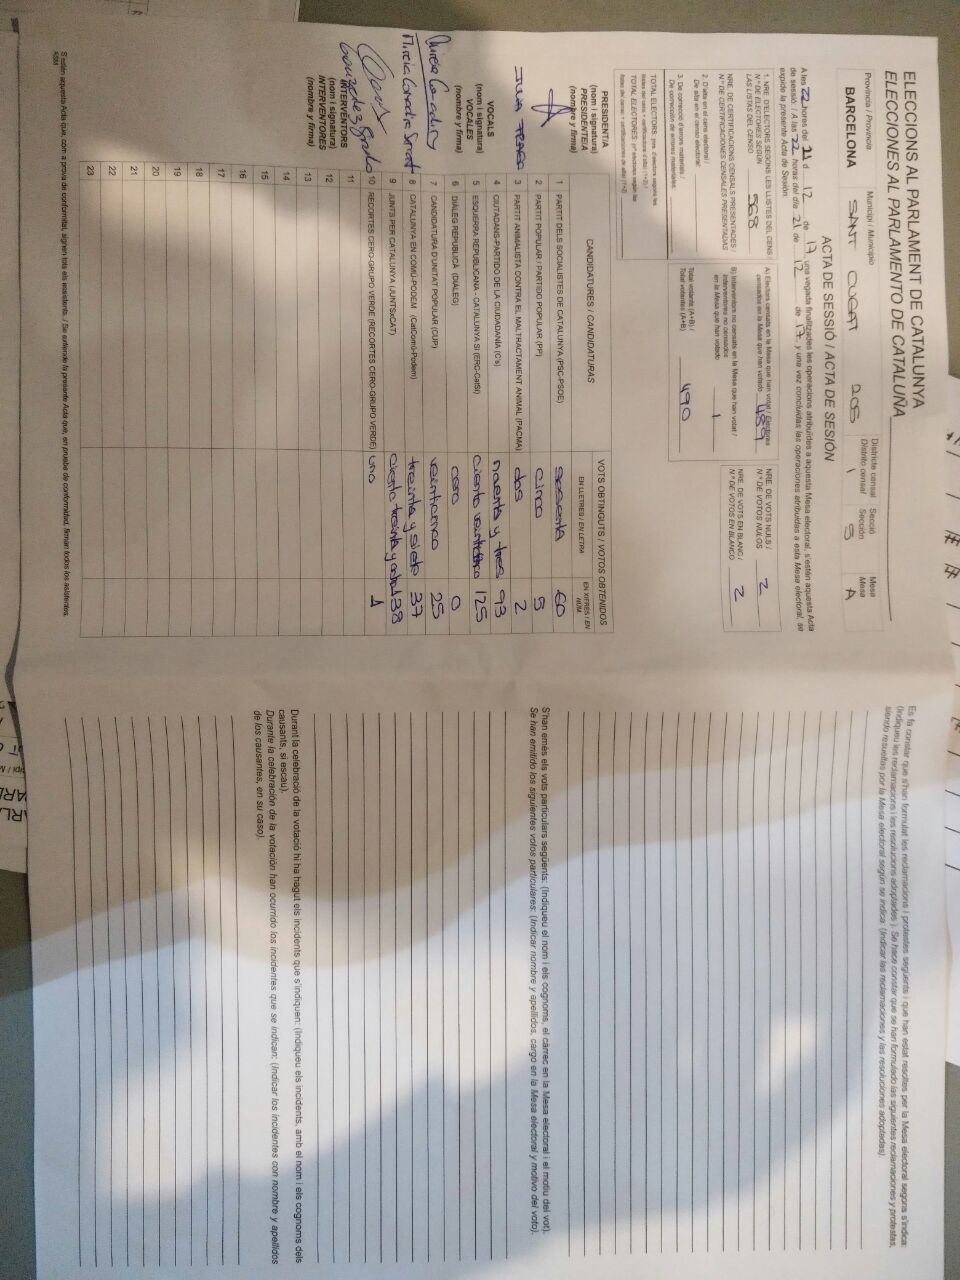 ELECCIONS AL PARLAMENT DE CATALUNYA
ELECCIONES AL PARLAMENTO DE CATALUÑA
Província / Provincia
BARCELONA
Municipi / Municipio
SANT CUGAT 205
Districte censal
Distrito censal
1
Secció
Sección
Mesa
Mesa
A
ACTA DE SESSIÓ / ACTA DE SESIÓN
A les 22 hores del 21 d 12 de 17, una vegada finalitzades les operacions atribuïdes a aquesta Mesa electoral, s'estén aquesta Acta
de sessió. / A las 22 horas del día 21 de 12 de 17, y una vez concluidas las operaciones atribuidas a esta Mesa electoral, se
expide la presente Acta de Sesión.
1. NRE. D'ELECTORS SEGONS LES LLISTES DEL CENS /
N.º DE ELECTORES SEGÚN
LAS LISTAS DEL CENSO 568
NRE. DE CERTIFICACIONS CENSALS PRESENTADES /
N.º DE CERTIFICACIONES CENSALES PRESENTADAS
2. D'alta en el cens electoral /
De alta en el censo electoral
3. De correcció d'errors materials /
De corrección de errores materiales
A) Electors censats en la Mesa que han votat / Electores
censados en la Mesa que han votado 489
B) Interventors no censats en la Mesa que han votat /
Interventores no censados
en la Mesa que han votado 1
Total votants (A+B) /
Total votantes (A+B) 490
NRE. DE VOTS NULS /
N.º DE VOTOS NULOS 2
NRE. DE VOTS EN BLANC /
N.º DE VOTOS EN BLANCO 2
CANDIDATURES / CANDIDATURAS
VOTS OBTINGUTS / VOTOS OBTENIDOS
EN LLETRES / EN LETRA
EN XIFRES / EN NÚM.
1 PARTIT DELS SOCIALISTES DE CATALUNYA (PSC-PSOE) sesenta 60
2 PARTIT POPULAR / PARTIDO POPULAR (PP) cinco 5
3 PARTIT ANIMALISTA CONTRA EL MALTRACTAMENT ANIMAL (PACMA) dos 2
4 CIUTADANS-PARTIDO DE LA CIUDADANÍA (C's) noventa y tres 93
5 ESQUERRA REPUBLICANA - CATALUNYA SÍ (ERC-CatSí) ciento veinticinco 125
6 DIÀLEG REPUBLICÀ (DIÀLEG) cero 0
7 CANDIDATURA D'UNITAT POPULAR (CUP) veinticinco 25
8 CATALUNYA EN COMÚ-PODEM (CatComú-Podem) treinta y siete 37
9 JUNTS PER CATALUNYA (JUNTSxCAT) ciento treinta y ocho 138
10 RECORTES CERO-GRUPO VERDE (RECORTES CERO-GRUPO VERDE) uno 1
11
12
13
14
15
16
17
18
19
20
21
22
23
PRESIDENT/A
(nom i signatura)
PRESIDENTE/A
(nombre y firma)
VOCALS
(nom i signatura)
VOCALES
(nombre y firma)
INTERVENTORS
(nom i signatura)
INTERVENTORES
(nombre y firma)
S'estén aquesta Acta que, com a prova de conformitat, signen tots els assistents. / Se extiende la presente Acta que, en prueba de conformidad, firman todos los asistentes.
Es fa constar que s'han formulat les reclamacions i protestes següents i que han estat resoltes per la Mesa electoral segons s'indica:
(Indiqueu les reclamacions i les resolucions adoptades). Se hace constar que se han formulado las siguientes reclamaciones y protestas,
siendo resueltas por la Mesa electoral según se indica: (Indicar las reclamaciones y las resoluciones adoptadas).
S'han emès els vots particulars següents: (Indiqueu el nom i els cognoms, el càrrec en la Mesa electoral i el motiu del vot).
Se han emitido los siguientes votos particulares: (Indicar nombre y apellidos, cargo en la Mesa electoral y motivo del voto).
Durant la celebració de la votació hi ha hagut els incidents que s'indiquen: (Indiqueu els incidents, amb el nom i els cognoms dels
causants, si escau).
Durante la celebración de la votación han ocurrido los incidentes que se indican: (Indicar los incidentes con nombre y apellidos
de los causantes, en su caso).